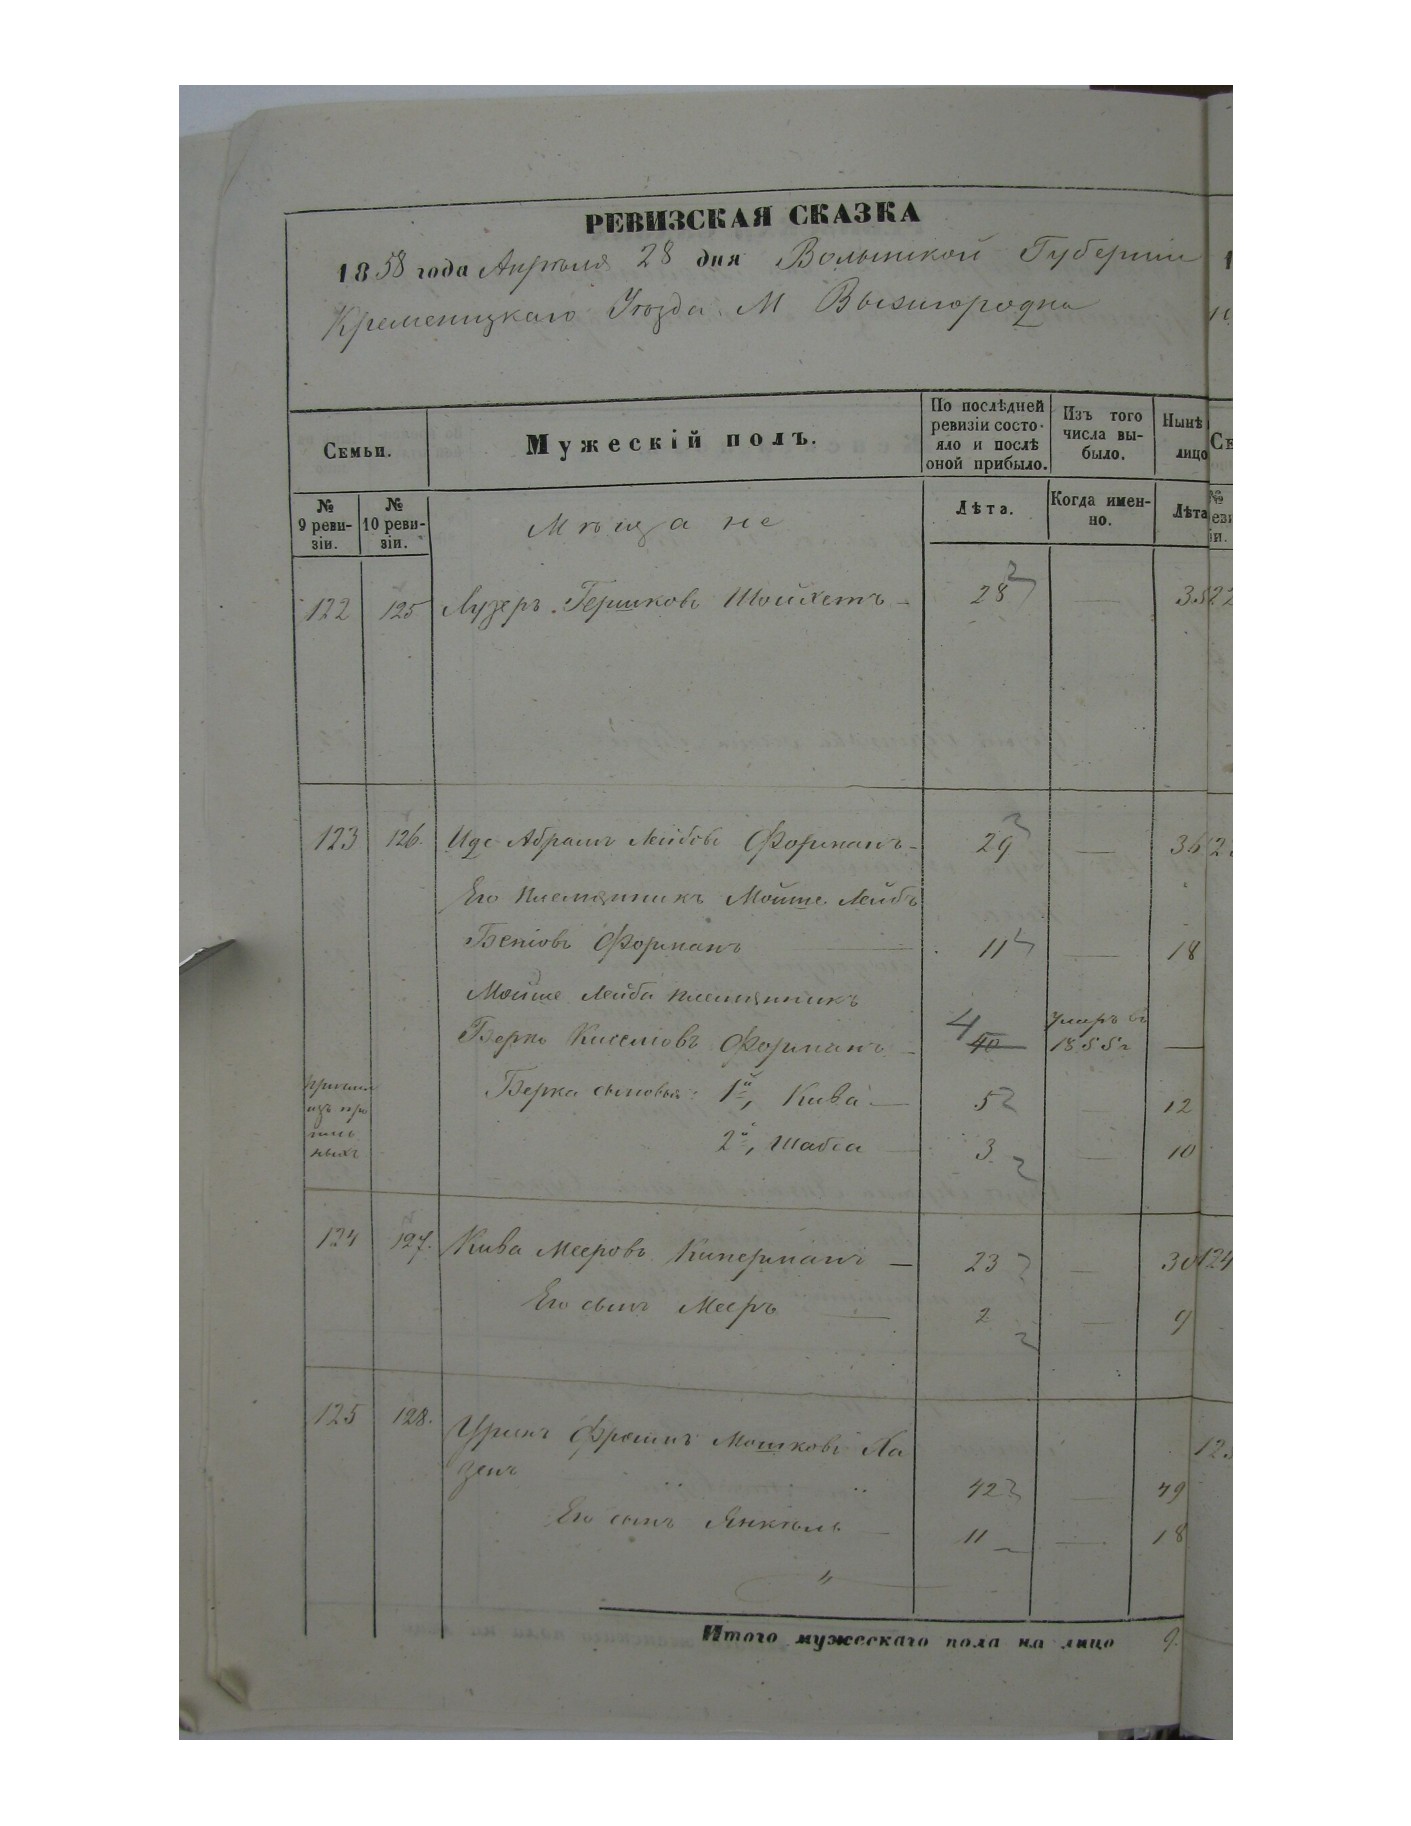 РЕВИЗСКАЯ СКАЗКА
1858 года Апрѣля 28 дня Волынской Губерніи
Кременецкаго Уѣзда М Вышгородка
Семьи.
Мужескій полъ.
По послѣдней ревизіи состояло и послѣ оной прибыло.
Изъ того числа выбыло.
Нынѣ лицо
№ 9 ревизіи.
№ 10 ревизіи.
Лѣта.
Когда именно.
Лѣта
Мѣщане
122 125 Лузеръ Гершковъ Шойхетъ — 28 — 35
123 126. Идс Абрамъ Лейбовъ Форманъ — 29 — 36
Его племянникъ Мойше Лейбъ
Бенiовъ Форманъ 11 — 18
Мойше Лейба племянникъ
Берко Киселiовъ Форманъ — 4 40 Умеръ въ 1855 г —
Берка сыновья: 1й, Кива — 5 — 12
2й, Шабса — 3 — 10
124 127. Кива Мееровъ Киперманъ — 23 — 30
Его сынъ Мееръ — 2 — 9
125 128. Фроимъ Мошковъ Ха
зенъ 42 — 49
Его сынъ Янкель — 11 — 18
"
Итого мужескаго пола на лицо 9.